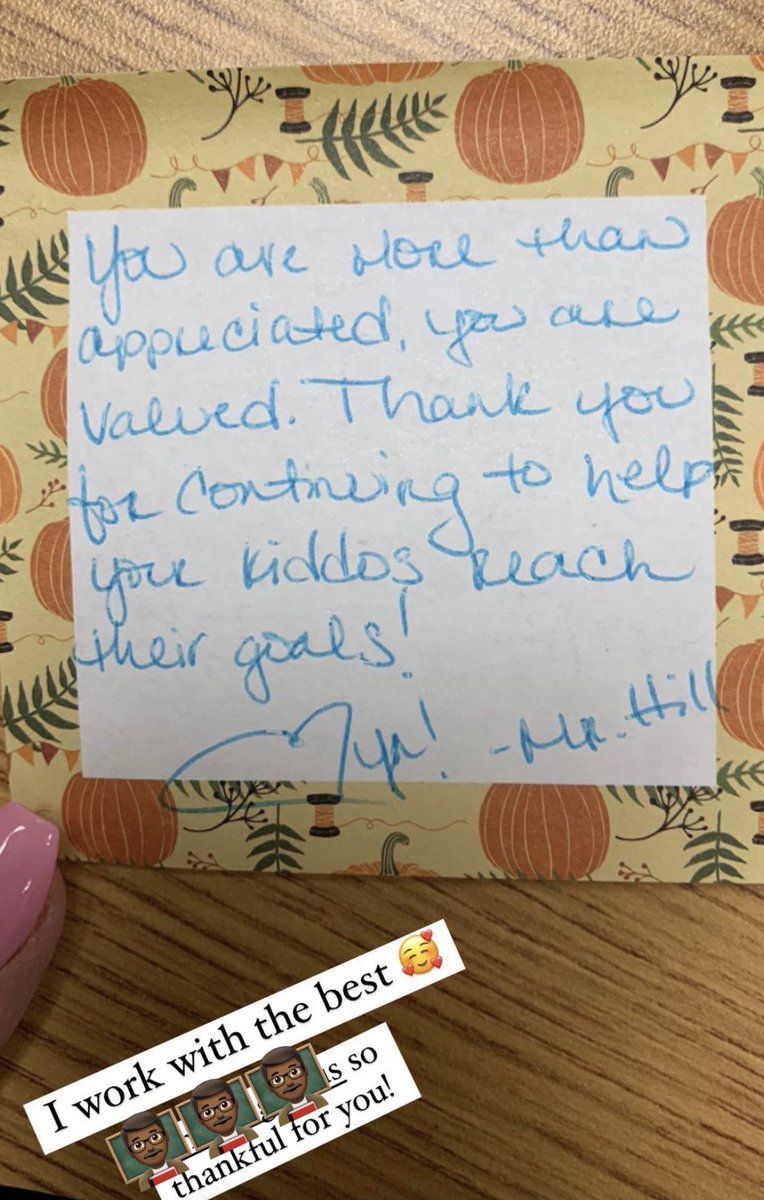 You are more than
appreciated, you are
valued. Thank you
for continuing to help
your kiddos reach
their goals!
-Mr. Hill
I work with the best 🥰
is so
thankful for you!